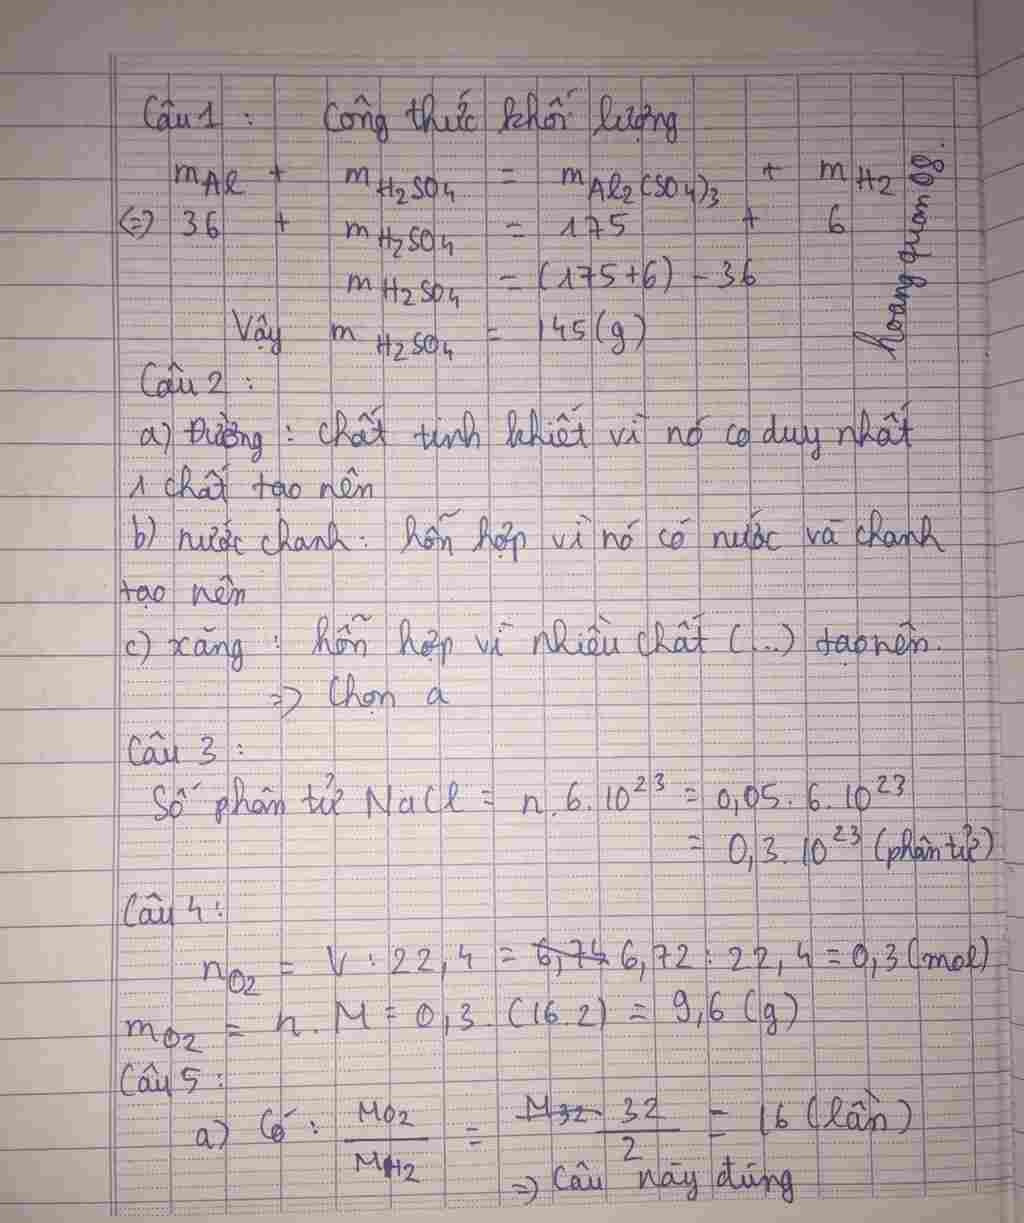 Câu 1 : Công thức khối lượng
mAl + mH2SO4 = mAl2(SO4)3 + mH2
<=> 36 + mH2SO4 = 175 + 6
mH2SO4 = (175+6) - 36
Vậy mH2SO4 = 145 (g)
hoangquan08.
Câu 2 :
a) Đường : chất tinh khiết vì nó có duy nhất
1 chất tạo nên
b) nước chanh : hỗn hợp vì nó có nước và chanh
tạo nên
c) xăng : hỗn hợp vì nhiều chất (...) tạo nên.
=> Chọn a
Câu 3 :
Số phân tử NaCl = n . 6 . 10^23 = 0,05 . 6 . 10^23
= 0,3 . 10^23 (phân tử)
Câu 4 :
nO2 = V : 22,4 = 6,74 6,72 : 22,4 = 0,3 (mol)
mO2 = n . M = 0,3 . (16.2) = 9,6 (g)
Câu 5 :
a) Có : MO2/MH2 = M32 32/2 = 16 (lần)
=> Câu này đúng